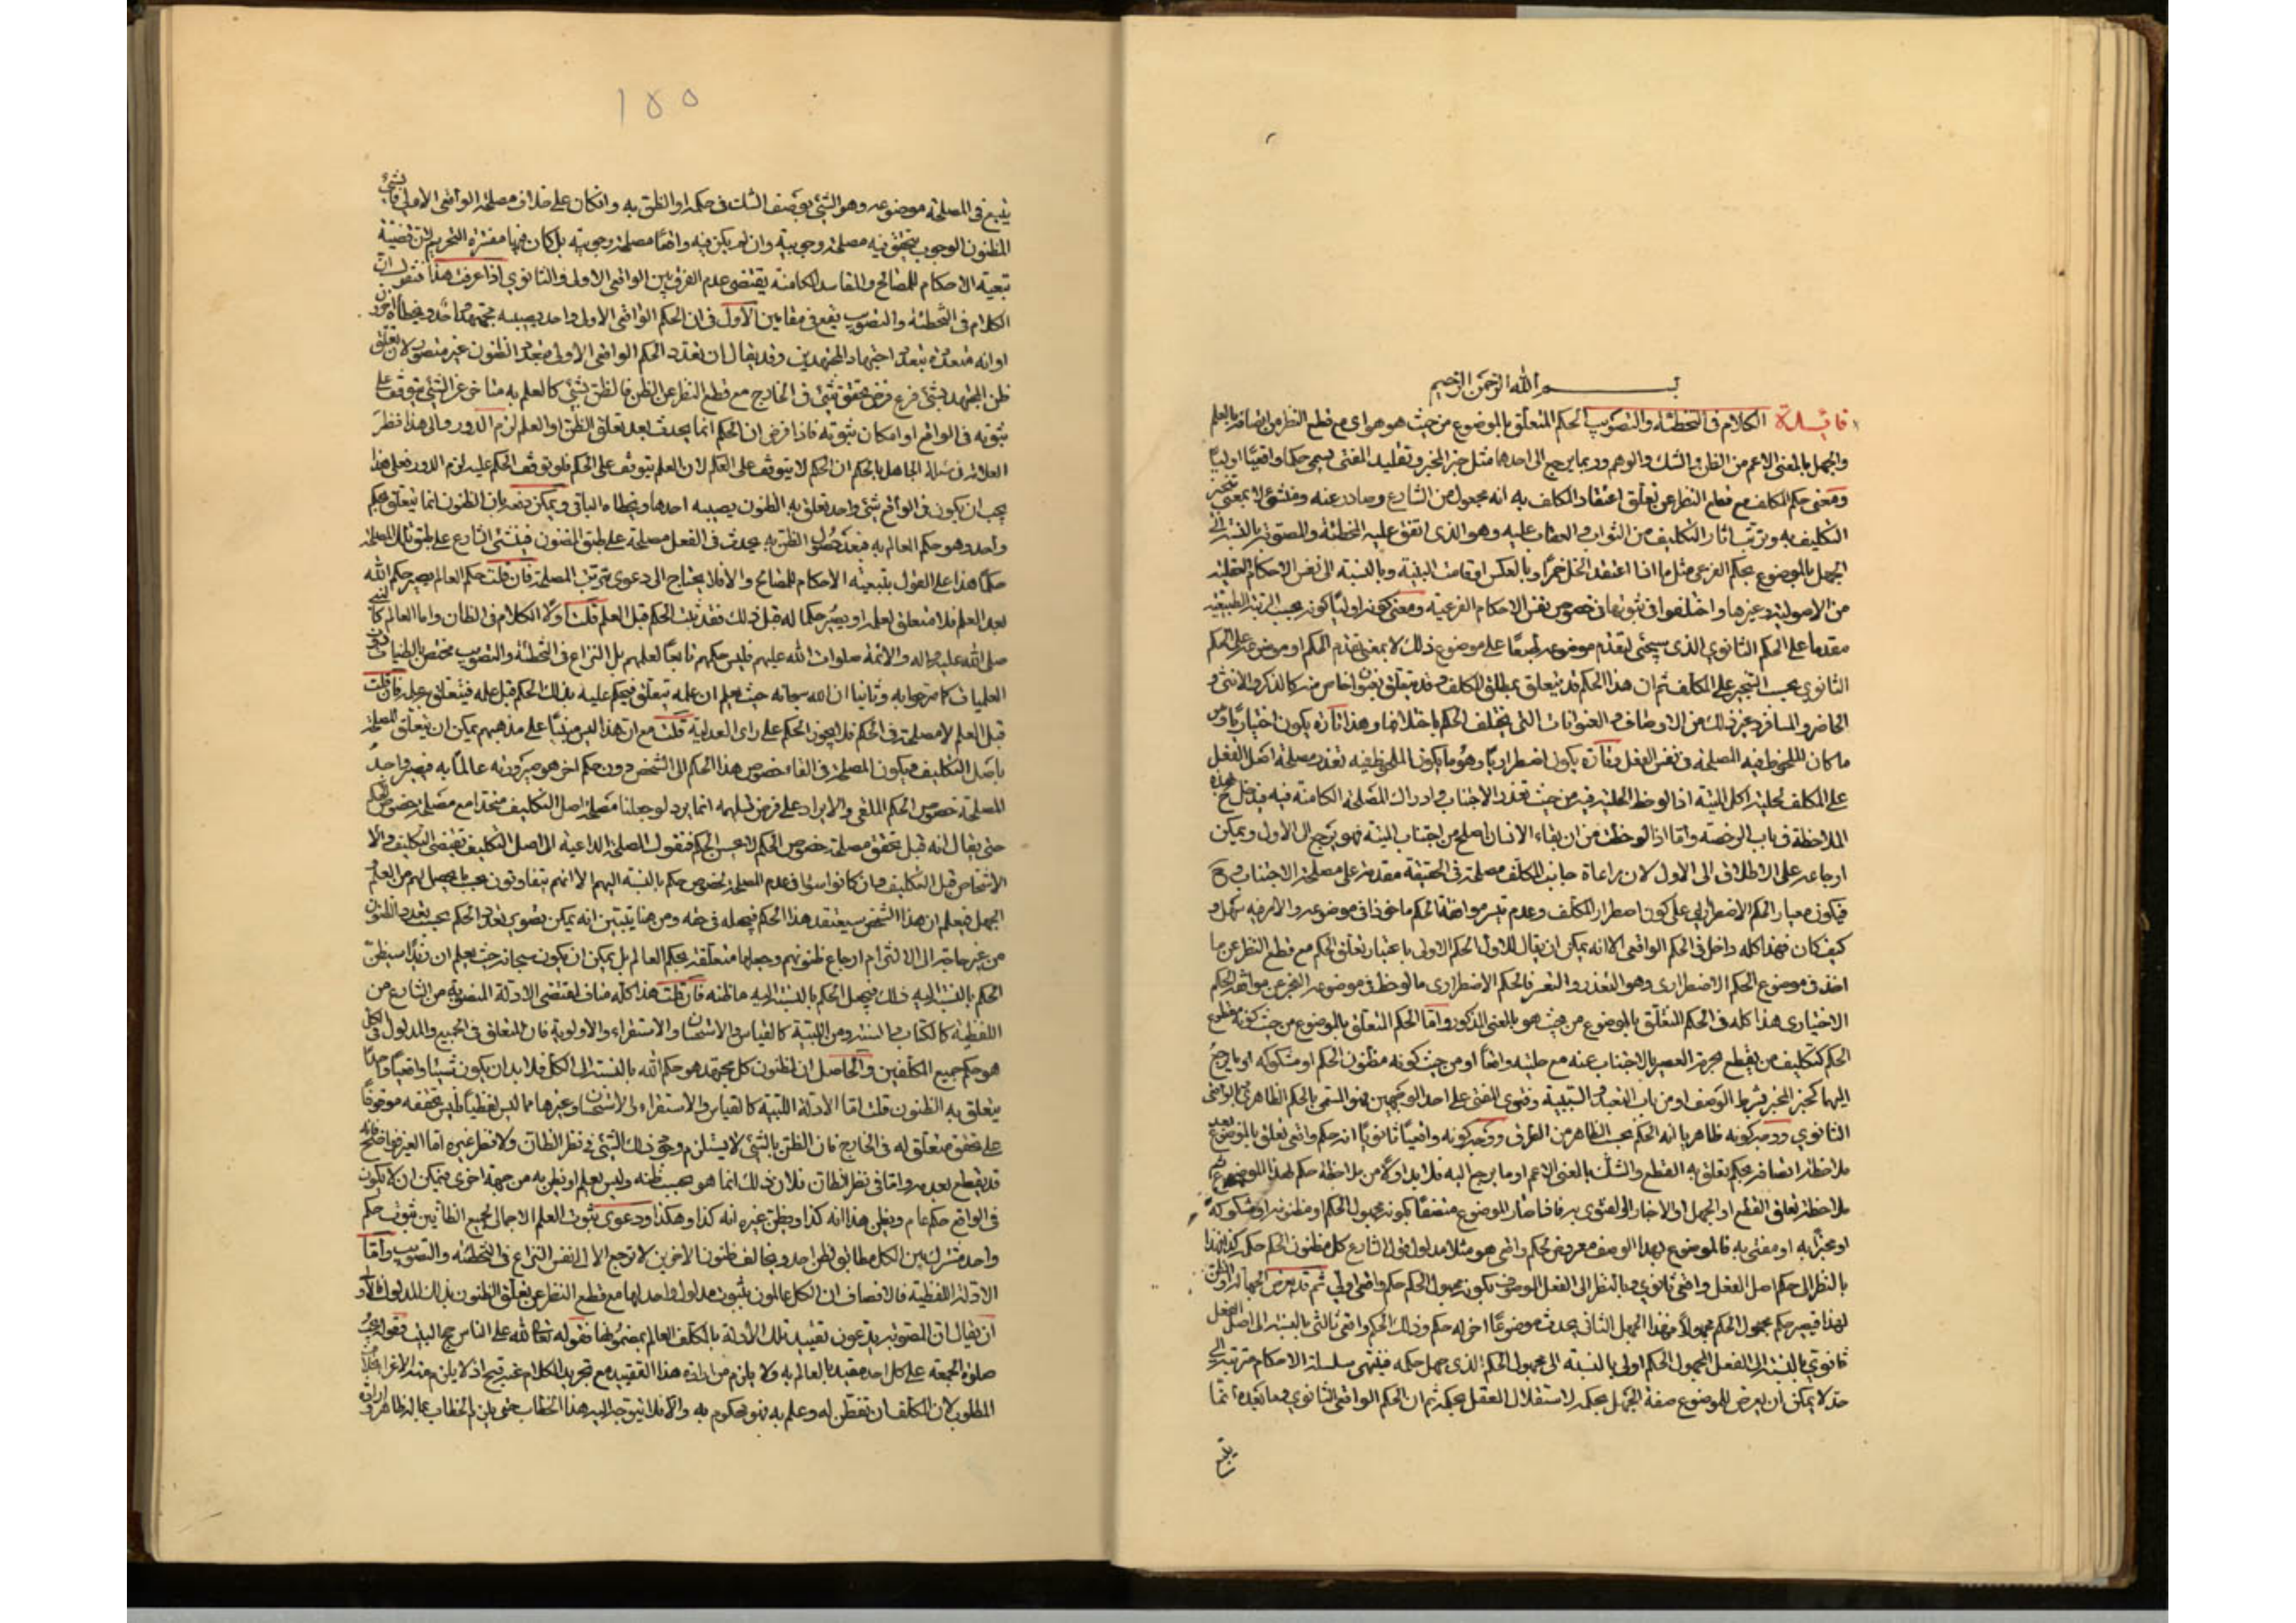 بسم الله الرحمن الرحيم
فائدة الكلام في التخطئة والتصويب الحكم المتعلق بالموضوع من حيث هو هو اي مع قطع النظر من اتصافه بالعلم
والجهل بالمعنى الاعم من الظن والشك والوهم وربما يرجع الى احدها مثل خبر المخبر وتقليد المفتى يسمى حكما واقعيا اوليا
ومعنى حكم المكلف مع قطع النظر عن تعلق اعتقاد المكلف به انه مجعول من الشارع وصادر عنه ومنشئ لا بمعنى تنجز
التكليف به وترتب اثار التكليف من الثواب والعقاب عليه وهو الذى اتفق عليه المخطئة والمصوبة بالنسبة الى
الجهل بالموضوع بحكم الفرعى مثل ما اذا اعتقد الخل خمرا وبالعكس او قامت البينة وبالنسبة الى نفس الاحكام العقلية
من الاصولية وغيرها واختلفوا في ثبوتها في خصوص نفس الاحكام الفرعية ومعنى كونه اوليا كونه بحسب الرتبة الطبيعية
مقدما على الحكم الثانوي الذى سيجئ لتقدم موضوعه طبعا على موضوع ذلك لا بمعنى تقدم الحكم او موضوعه على الحكم
الثانوي بحسب التنجيز على المكلف ثم ان هذا الحكم قد يتعلق بمطلق المكلف وقد يتعلق بعنوان خاص منه كالذكر والانثى و
الحاضر والمسافر وغير ذلك من الاوصاف والعنوانات التى يختلف الحكم باختلافها وهذا تارة يكون اختياريا وهى
ما كان الملحوظ فيه المصلحة في نفس الفعل وتارة يكون اضطراريا وهو ما يكون الملحوظ فيه تعذر مصلحة اصل الفعل
على المكلف كحلية اكل الميتة اذا لوحظ الحلية فيه من حيث تعذر الاجتناب وادراك المصلحة الكامنة فيه فيدخل ح بهذه
الملاحظة في باب الرخصة واما اذا لوحظت من ان بقاء الانسان اصلح من اجتناب الميتة فهو يرجع الى الاول ويمكن
ارجاعه على الاطلاق الى الاول لان مراعاة جانب المكلف مصلحة في الحقيقة مقدمة على مصلحة الاجتناب وح
فيكون معيار الحكم الاضطراري على كون اضطرار المكلف وعدم تيسر موافقة الحكم ماخوذا في موضوعه والامر فيه سهل و
كيف كان فهذا كله داخل في الحكم الواقعى الا انه يمكن ان يقال للاول الحكم الاولى باعتبار تعلق الحكم مع قطع النظر عن ما
اخذ في موضوع الحكم الاضطرارى وهو التعذر والتعسر فالحكم الاضطرارى ما لوحظ في موضوعه العجز عن موافقة الحكم
الاختيارى هذا كله في الحكم المتعلق بالموضوع من حيث هو بالمعنى المذكور واما الحكم المتعلق بالموضوع من حيث كونه مقطوع
الحكم كتكليف من يقطع بحرمة العصير بالاجتناب عنه مع حليته واقعا او من حيث كونه مظنون الحكم او مشكوكه او ما يرجع
اليها كخبر المخبر بشرط الوصف او من باب التعبد والسببية وفتوى المفتى على احد الوجهين فهو المسمى بالحكم الظاهرى والواقعى
الثانوي ووجه كونه ظاهريا انه الحكم بحسب الظاهر من الطرف ووجه كونه واقعيا ثانويا انه حكم واقعى تعلق بالموضوع بعد
ملاحظة اتصافه بحكم تعلق به القطع والشك بالمعنى الاعم او ما يرجع اليه فلا بد اولا من ملاحظة حكم لهذا الموضوع ثم
ملاحظة تعلق القطع او الجهل او الاخبار او الفتوى به فاذا صار الموضوع متصفا بكونه مجهول الحكم او مظنونه او مشكوكه
او مخبرا به او مفتى به فالموضوع بهذا الوصف معروض لحكم واقعى هو مثلا مدلول قول الشارع كل مظنون الحكم حكمه كذا فهذا
بالنظر الى حكم اصل الفعل واقعى ثانوي وبالنظر الى الفعل الموصوف بكونه مجهول الحكم حكم واقعى اولي ثم قد يعرض الجهالة او الظن
لهذا فيصير حكم مجهول الحكم مجهولا فبهذا الجهل الثانى يحدث موضوعا اخر له حكم وذلك الحكم واقعى ثالثى بالنسبة الى اصل الفعل
ثانوي بالنسبة الى الفعل المجهول الحكم اولى بالنسبة الى مجهول الحكم الذى جهل حكمه فتنتهى سلسلة الاحكام مترتبة الى
حد لا يمكن ان يعرض للموضوع صفة الجهل بحكمه لاستقلال العقل بحكمه ثم ان الحكم الواقعى الثانوي وما بعده انما
يتبع
١٥٥
يتبع في المصلحة موضوعه وهو الشئ بوصف الشك في حكمه او الظن به وان كان على خلاف مصلحة الواقعى الاولى فالشئ
المظنون الوجوب يتحقق فيه مصلحة وجوبية وان لم يكن فيه واقعا مصلحة وجوبية بل كان فيها مفسدة التحريم لان قضية
تبعية الاحكام للمصالح والمفاسد الكامنة يقتضى عدم الفرق بين الواقعى الاولى والثانوي اذا عرفت هذا فنقول ان
الكلام في التخطئة والتصويب يقع في مقامين الاول في ان الحكم الواقعى الاول واحد يصيبه مجتهد واحد ويخطأه اخرون
او انه متعدد بتعدد اجتهاد المجتهدين وقد يقال ان تعدد الحكم الواقعى الاولى بتعدد الظنون غير متصور لان تعلق
ظن المجتهد بشئ فرع فرض تحقق شئ في الخارج مع قطع النظر عن الظن فالظن بشئ كالعلم به متاخر عن الشئ متوقف على
ثبوته في الواقع او امكان ثبوته فاذا فرض ان الحكم انما يحدث بعد تعلق الظن او العلم لزم الدور والى هذا نظر
العلامة في مسئلة الجاهل بالحكم ان الحكم لا يتوقف على العلم لان العلم يتوقف على الحكم فلو توقف الحكم عليه لزم الدور فعلى هذا
يجب ان يكون في الواقع شئ واحد تعلق به الظنون يصيبه احدها ويخطاه الباقى ويمكن دفعه بان الظنون انما يتعلق بحكم
واحد وهو حكم العالم به فبعد حصول الظن به يحدث في الفعل مصلحة على طبق المظنون فينشئ الشارع على طبق تلك المصلحة
حكما هذا على القول بتبعية الاحكام للمصالح والا فلا يحتاج الى دعوى ترتب المصلحة فان قلت حكم العالم يصير حكم الله
بعد العلم فلا متعلق لعلمه او يصير حكما له قبل ذلك فقد ثبت الحكم قبل العلم قلت اولا الكلام في الظان واما العالم كالنبى
صلى الله عليه واله والائمة صلوات الله عليهم فليس حكمهم تابعا لعلمهم بل النزاع في التخطئة والتصويب مختص بالظنيات دون
العلميات كما صرحوا به وثانيا ان الله سبحانه حيث يعلم ان علمه يتعلق فيحكم عليه بذلك الحكم قبل علمه فيتعلق به علمه فان قلت
قبل العلم لا مصلحة في الحكم فلا يجوز الحكم على راى العدلية قلت مع ان هذا ليس مبنيا على مذهبهم يمكن ان يتعلق المصلحة
باصل التكليف ويكون المصلحة في القاء خصوص هذا الحكم الى الشخص دون حكم اخر هو صيرورته عالما به فيصير واحد
المصلحة خصوص الحكم الملقى والايراد على فرض تسليمه انما يرد لو جعلنا مصلحة اصل التكليف متحدا مع مصلحة خصوص الحكم
حتى يقال انه قبل تحقق مصلحة خصوص الحكم لا يحسن الحكم فنقول المصلحة الداعية الى اصل التكليف تقتضى التكليف والا
الاشخاص قبل التكليف وان كانوا سواء في عدم المصلحة لخصوص حكم بالنسبة اليهم الا انهم يتفاوتون بحسب ما يحصل لهم من العلم و
الجهل فيعلم ان هذا الشخص سيعتقد هذا الحكم فيجعله في حقه ومن هنا يتبين انه يمكن تصوير تعدد الحكم بحسب تعدد الظنون
من غير حاجة الى الالتزام ارجاع ظنونهم وجعلها متعلقة بحكم العالم بل يمكن ان يكون سبحانه حيث يعلم ان زيدا سيظن
الحكم بالنسبة اليه ذلك فيجعل الحكم بالنسبة اليه ما ظنه فان قلت هذا كله مناف لمقتضى الادلة المنصوبة من الشارع من
اللفظية كالكتاب والسنة ومن اللبية كالقياس والاستحسان والاستقراء والاولوية فان المتعلق في الجميع والمدلول في الكل
هو حكم جميع المكلفين والحاصل ان المظنون كل مجتهد هو حكم الله بالنسبة الى الكل فلا بد ان يكون شيئا واقعيا واحدا
يتعلق به الظنون قلت اما الادلة اللبية كالقياس والاستقراء والاستحسان وغيرها مما ليس لفظيا فليس تحققه موقوفا
على تحقق متعلق له في الخارج فان الظن بالشئ لا يستلزم وجود ذلك الشئ في نظر الظان ولا في نظر غيره اما الغير فواضح فانه
قد يقطع بعدمه واما في نظر الظان فلان ذلك انما هو بحسب ظنه وليس يعلم او يظن به من جهة اخرى فيمكن ان لا يكون
في الواقع حكم عام ويظن هذا انه كذا ويظن غيره انه كذا وهكذا ودعوى ثبوت العلم الاجمالى لجميع الظانين ثبوت حكم
واحد مشترك بين الكل مطابق لظن احد ويخالف ظنون الاخرين لا ترجع الا الى نفس النزاع في التخطئة والتصويب واما
الادلة اللفظية فالانصاف ان الكل عالمون بثبوت مدلول واحد لها مع قطع النظر عن تعلق الظنون بذلك المدلول الا
ان يقال ان المصوبة يدعون تقييد تلك الادلة بالمكلف العالم بمضمونها فقوله تعالى لله على الناس حج البيت وقوله يجب
صلوة الجمعة على كل احد مقيد بالعالم به ولا يلزم من ارادة هذا التقييد مع تجريد الكلام عنه قبيح اذ لا يلزم منه الاغراء بخلاف
المطلوب لان المكلف ان تفطن له وعلم به فهو محكوم به والا فلا يتوجه اليه هذا الخطاب حتى يلزم الخطاب بما له ظاهر وارادة